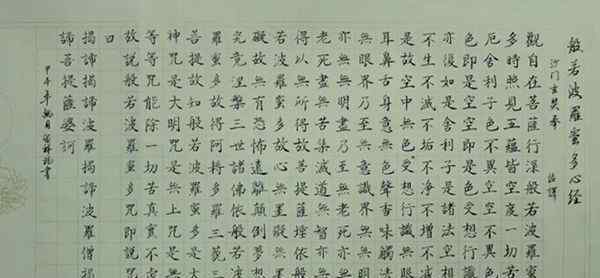 般若波羅蜜多心經
沙門玄奘奉 詔譯
觀自在菩薩行深般若波羅蜜
多時照見五蘊皆空度一切苦
厄舍利子色不異空空不異色
色即是空空即是色受想行識
亦復如是舍利子是諸法空相
不生不滅不垢不淨不增不減
是故空中無色受想行識無眼
耳鼻舌身意無色聲香味觸法
無眼界乃至無意識界無無明
亦無無明盡乃至無老死亦無
老死盡無苦集滅道無智亦無
得以無所得故菩提薩埵依般
若波羅蜜多故心無罣礙無罣
礙故無有恐怖遠離顛倒夢想
究竟涅槃三世諸佛依般若波
羅蜜多故得阿耨多羅三藐三
菩提故知般若波羅蜜多是大
神咒是大明咒是無上咒是無
等等咒能除一切苦真實不虛
故說般若波羅蜜多咒即說咒
曰
揭諦揭諦波羅揭諦波羅僧揭
諦菩提薩婆訶
甲午年 書